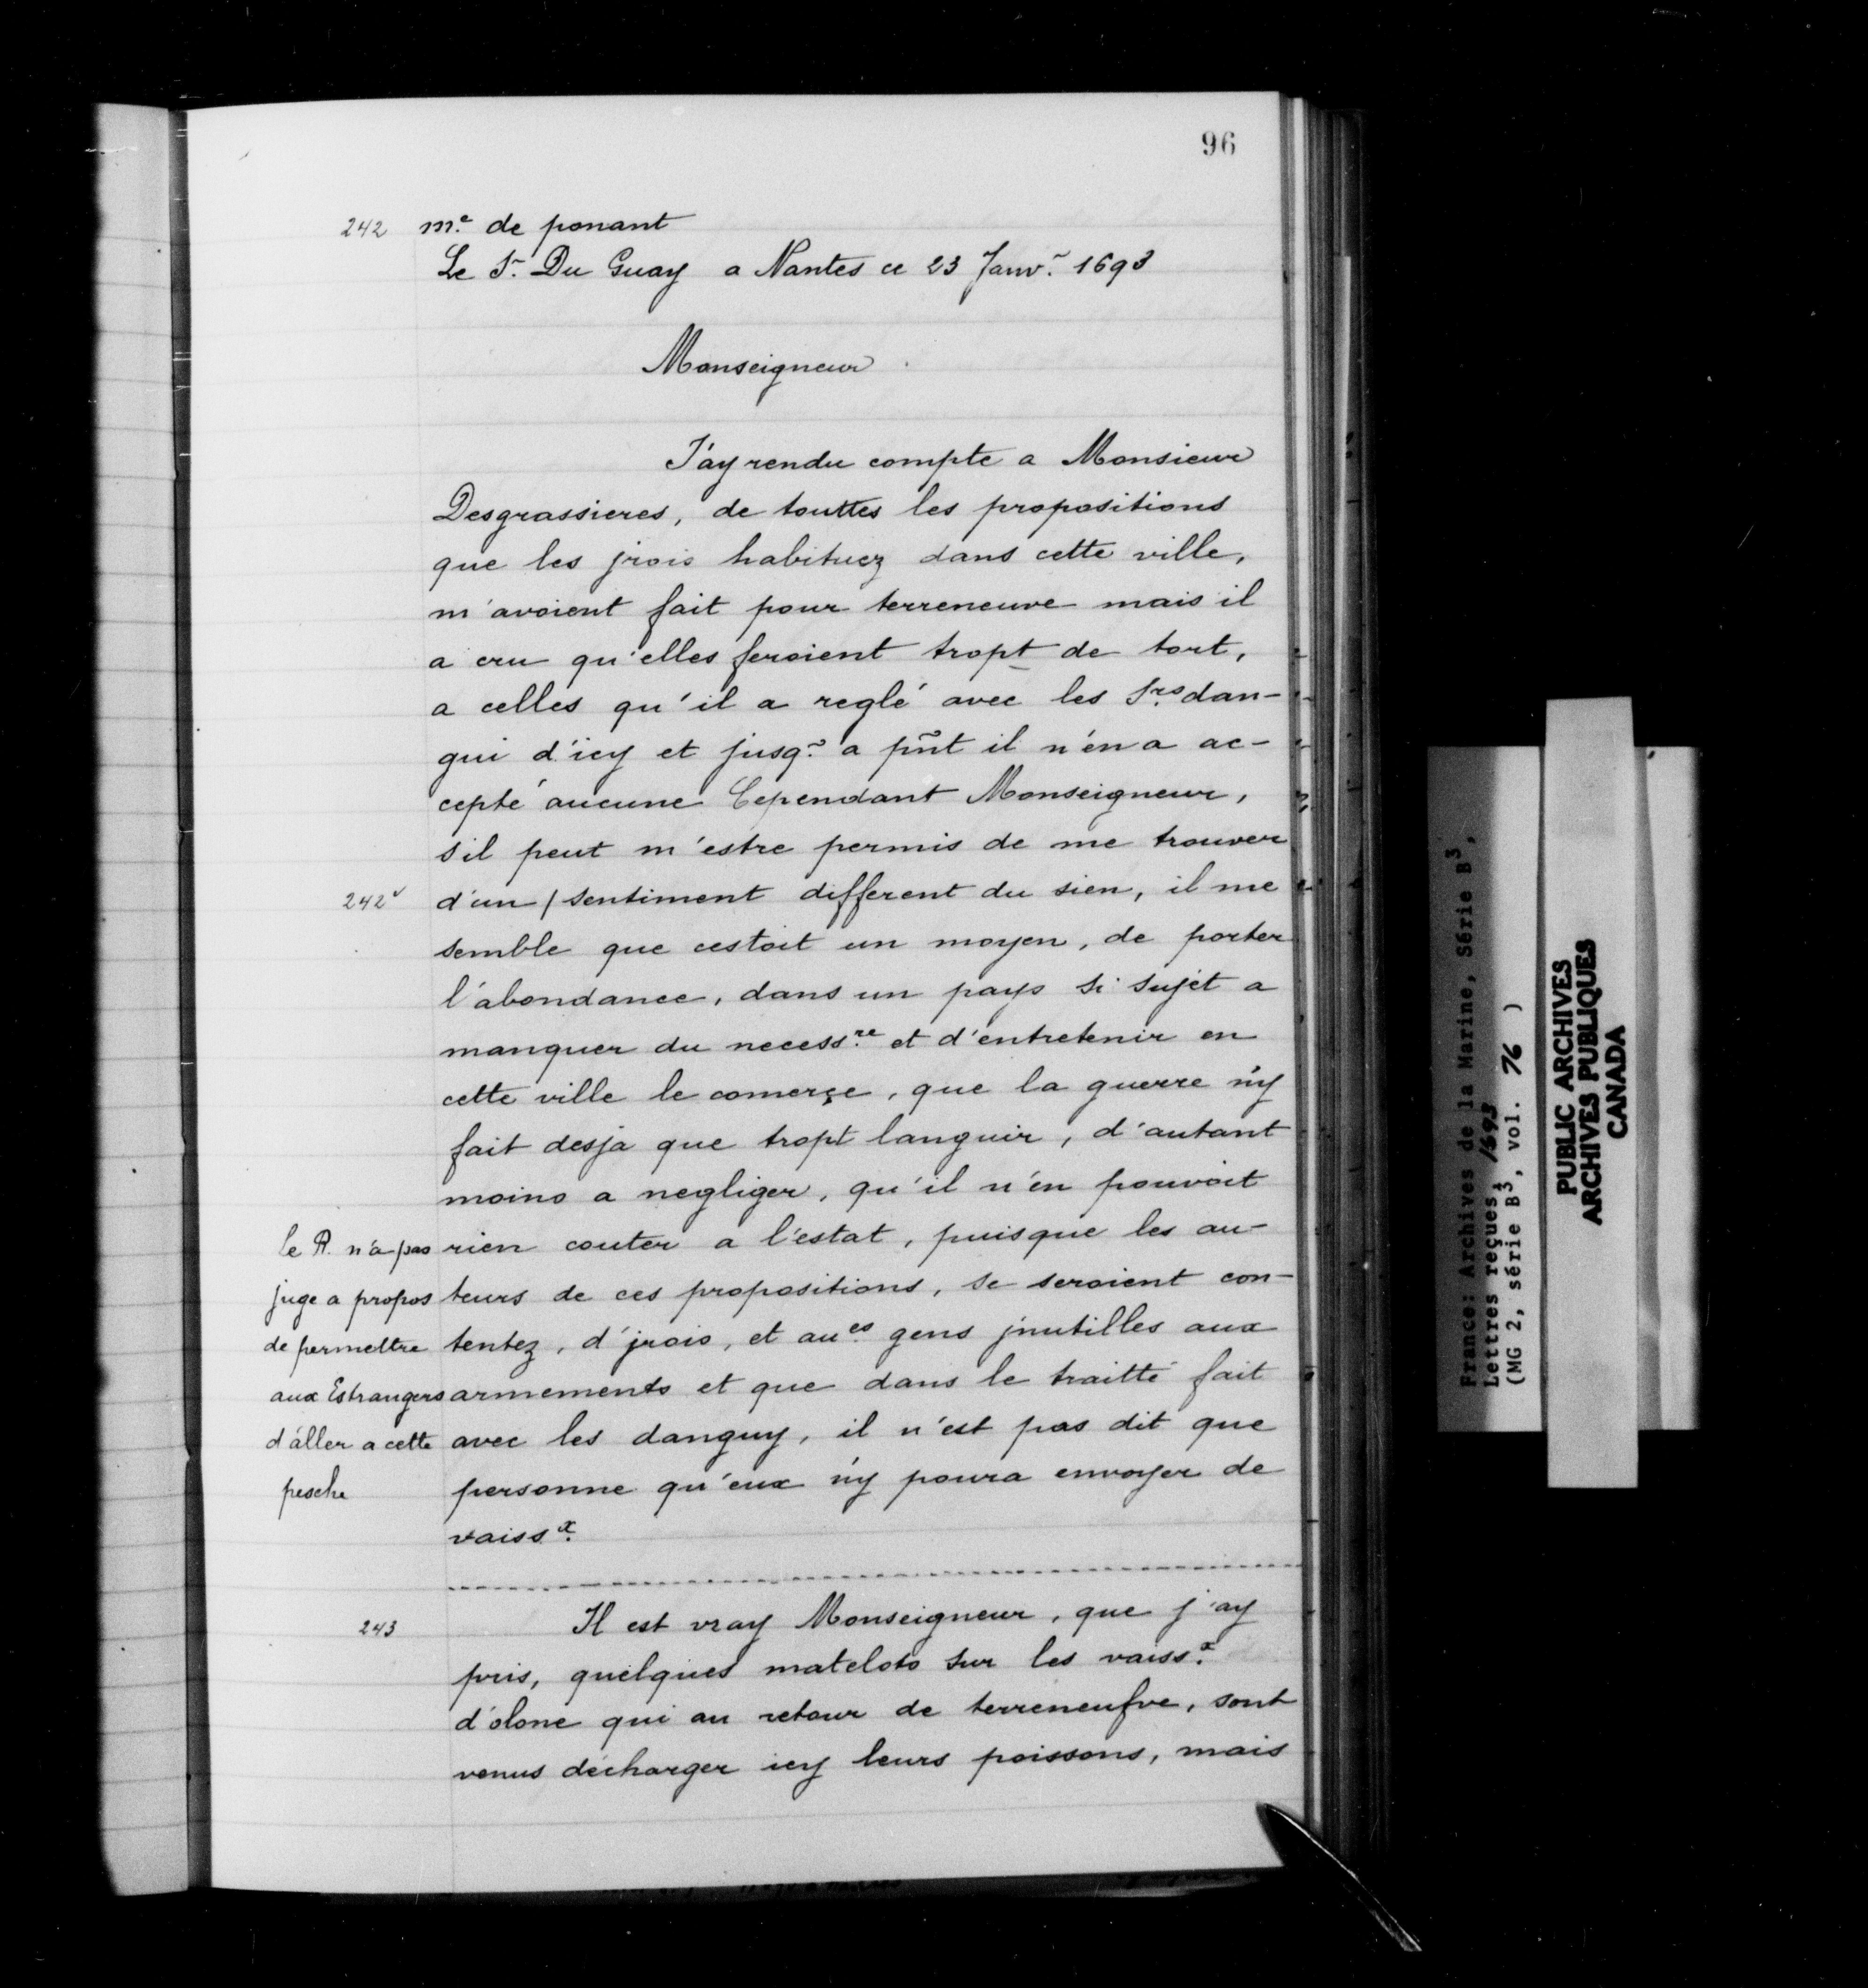 96
242 m.e de ponant
Le Sr. Du Guay a Nantes ce 23 Janv.r 1693
Monseigneur
J'ay rendu compte a Monsieur
Desgrassieres, de touttes les propositions
que les jrois habituez dans cette ville,
m'avoient fait pour terreneuve mais il
a cru qu'elles feroient tropt de tort,
a celles qu'il a reglé avec les Srs. dan-
gui d'icy et jusq.~ a pñt il n'en a ac-
cepté aucune Cependant Monseigneur,
s'il peut m'estre permis de me trouver
242v d'un / sentiment different du sien, il me
semble que cestoit un moyen, de porter
l'abondance, dans un pays si sujet a
manquer du necess.re et d'entretenir en
cette ville le comerçe, que la guerre n'y
fait desja que tropt languir, d'autant
moins a negliger, qu'il n'en pouvoit
rien couter a l'estat, puisque les au-
teurs de ces propositions, se seroient con-
tentez, d'jrois, et au.es gens jnutilles aux
armements et que dans le traitté fait
avec les danguy, il n'est pas dit que
personne qu'eux n'y poura envoyer de
vaiss.x
le R. n'a pas
juge a propos
de permettre
aux Estrangers
d'aller a cette
pesche
243 Il est vray Monseigneur, que j'ay
pris, quelques matelots sur les vaiss.x
d'olone qui au retour de terreneufve, sont
venus décharger icy leurs poissons, mais
France: Archives de la Marine, Série B3,
Lettres reçues, 1693
(MG 2, série B3, vol. 76 )
PUBLIC ARCHIVES
ARCHIVES PUBLIQUES
CANADA